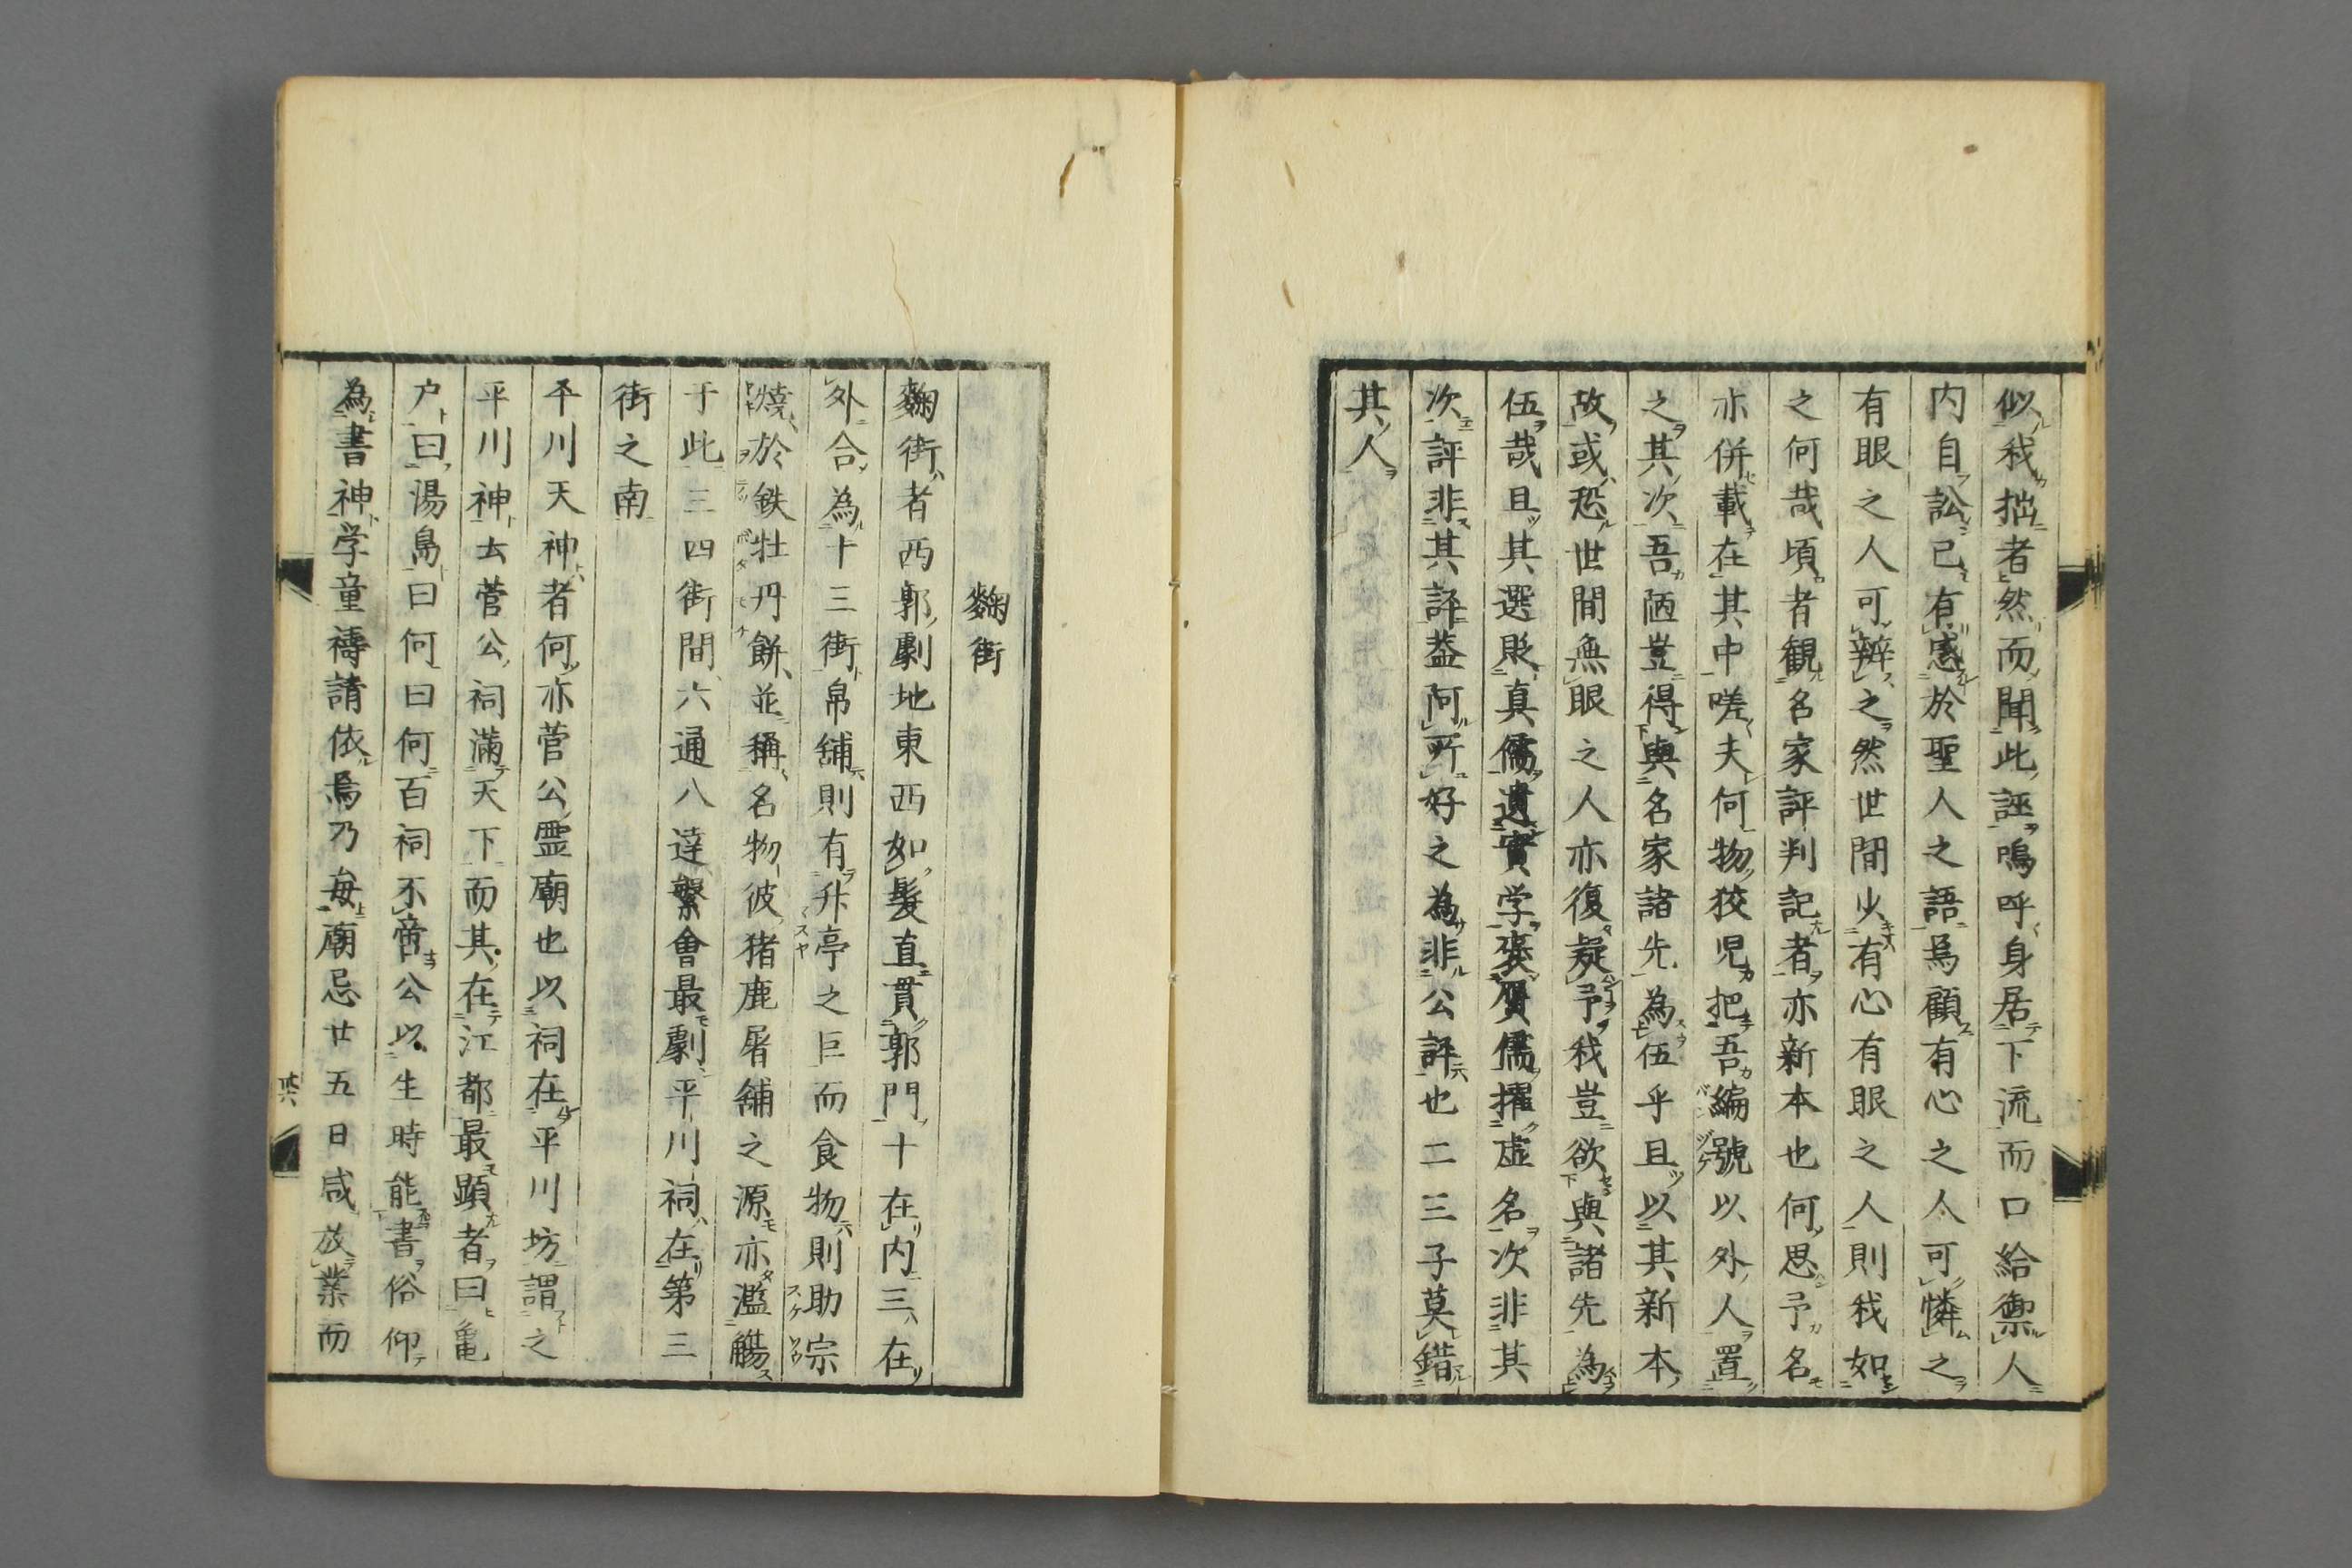 似我拙者然而聞此誣嗚呼身居下流而口給禦人
内自訟已有感於聖人之語焉顧有心之人可憐之
有眼之人可辨之然世間少有心有眼之人則我如
之何哉頃者観名家評判記者亦新本也何思予名
亦併載在其中嗟夫何物狡児把吾編號以外人置
之其次吾陋豈得與名家諸先為伍乎且以其新本
故或恐世間無眼之人亦復疑予我豈欲與諸先為
伍哉且其選貶真儒遺實学褒贋儒擢虚名次非其
次評非其評蓋阿所好之為非公評也二三子莫錯
其人
麹街
麹街者西郭劇地東西如髪直貫郭門十在内三在
外合為十三街帛舗則有升亭之巨而食物則助宗
燒於鉄牡丹餅並稱名物彼猪鹿屠舗之源亦濫觴
于此三四街間六通八達繋會最劇平川祠在第三
街之南
平川天神者何亦菅公霊廟也以祠在平川坊謂之
平川神去菅公祠滿天下而其在江都最顕者曰亀
户曰湯島曰何曰何百祠不啻公以生時能書俗仰
為書神学童禱請依焉乃毎廟忌廿五日咸放業而